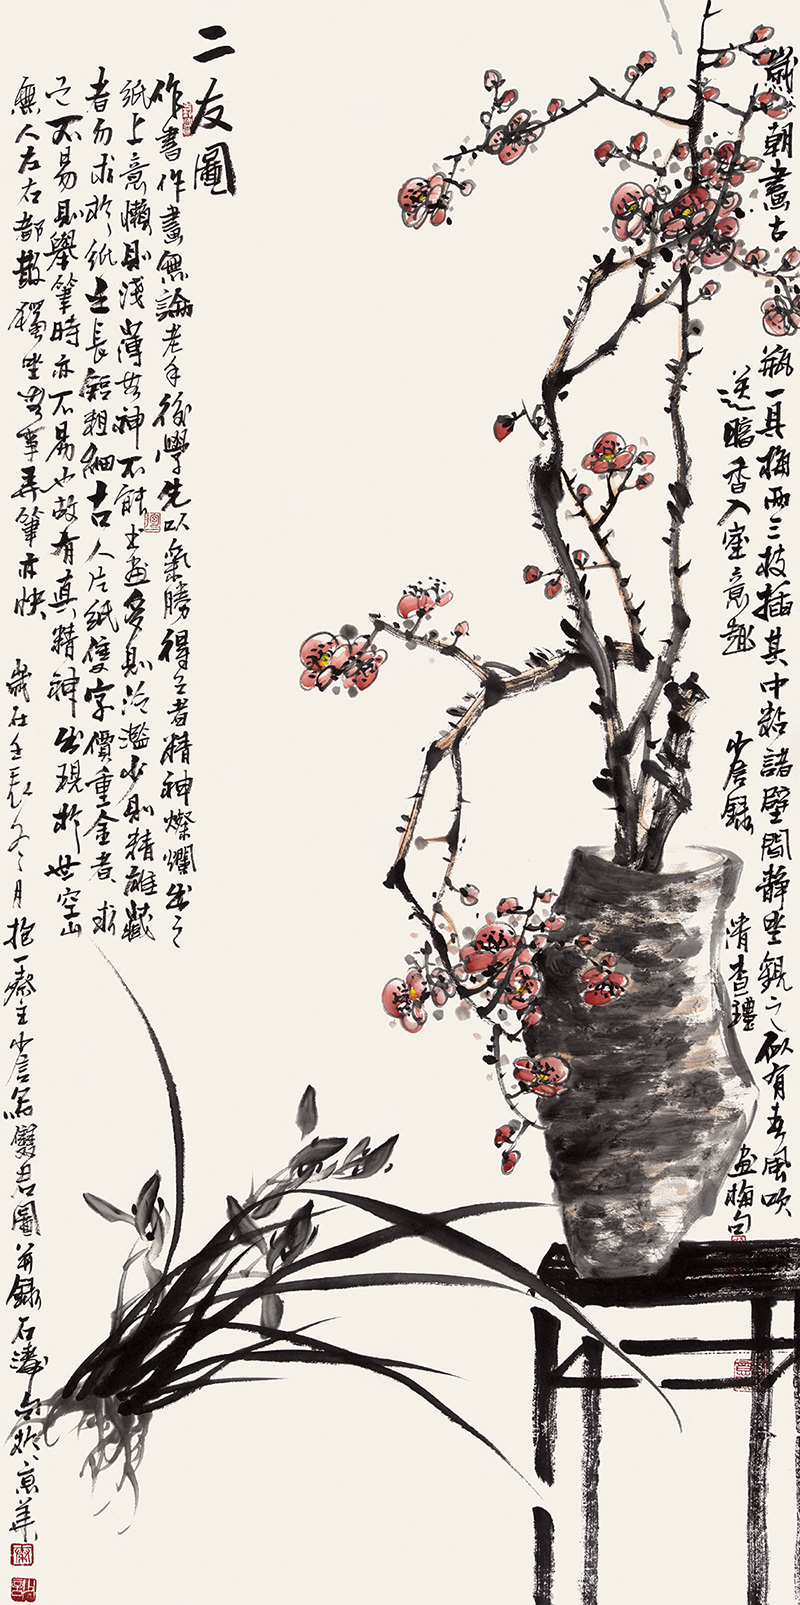 歲朝畫古瓶一具梅兩三枝插其中黏諸壁間靜坐觀之似有春風吹
送暗香入室意趣 少言錄 清查禮画梅句
二友圖
作書作畫無論老手後學先以氣勝得之者精神燦爛出之
紙上意懶則淺薄無神不能書画多則泛濫少則精雅藏
者勿求於紙上長短粗細古人片紙隻字價重金者求
之不易則舉筆時亦不易也故有真精神出現於世空山
無人左右都散獨坐無事弄筆亦快 歲在壬辰冬月抱一齋主少言寫雙君圖並錄石濤句於京華